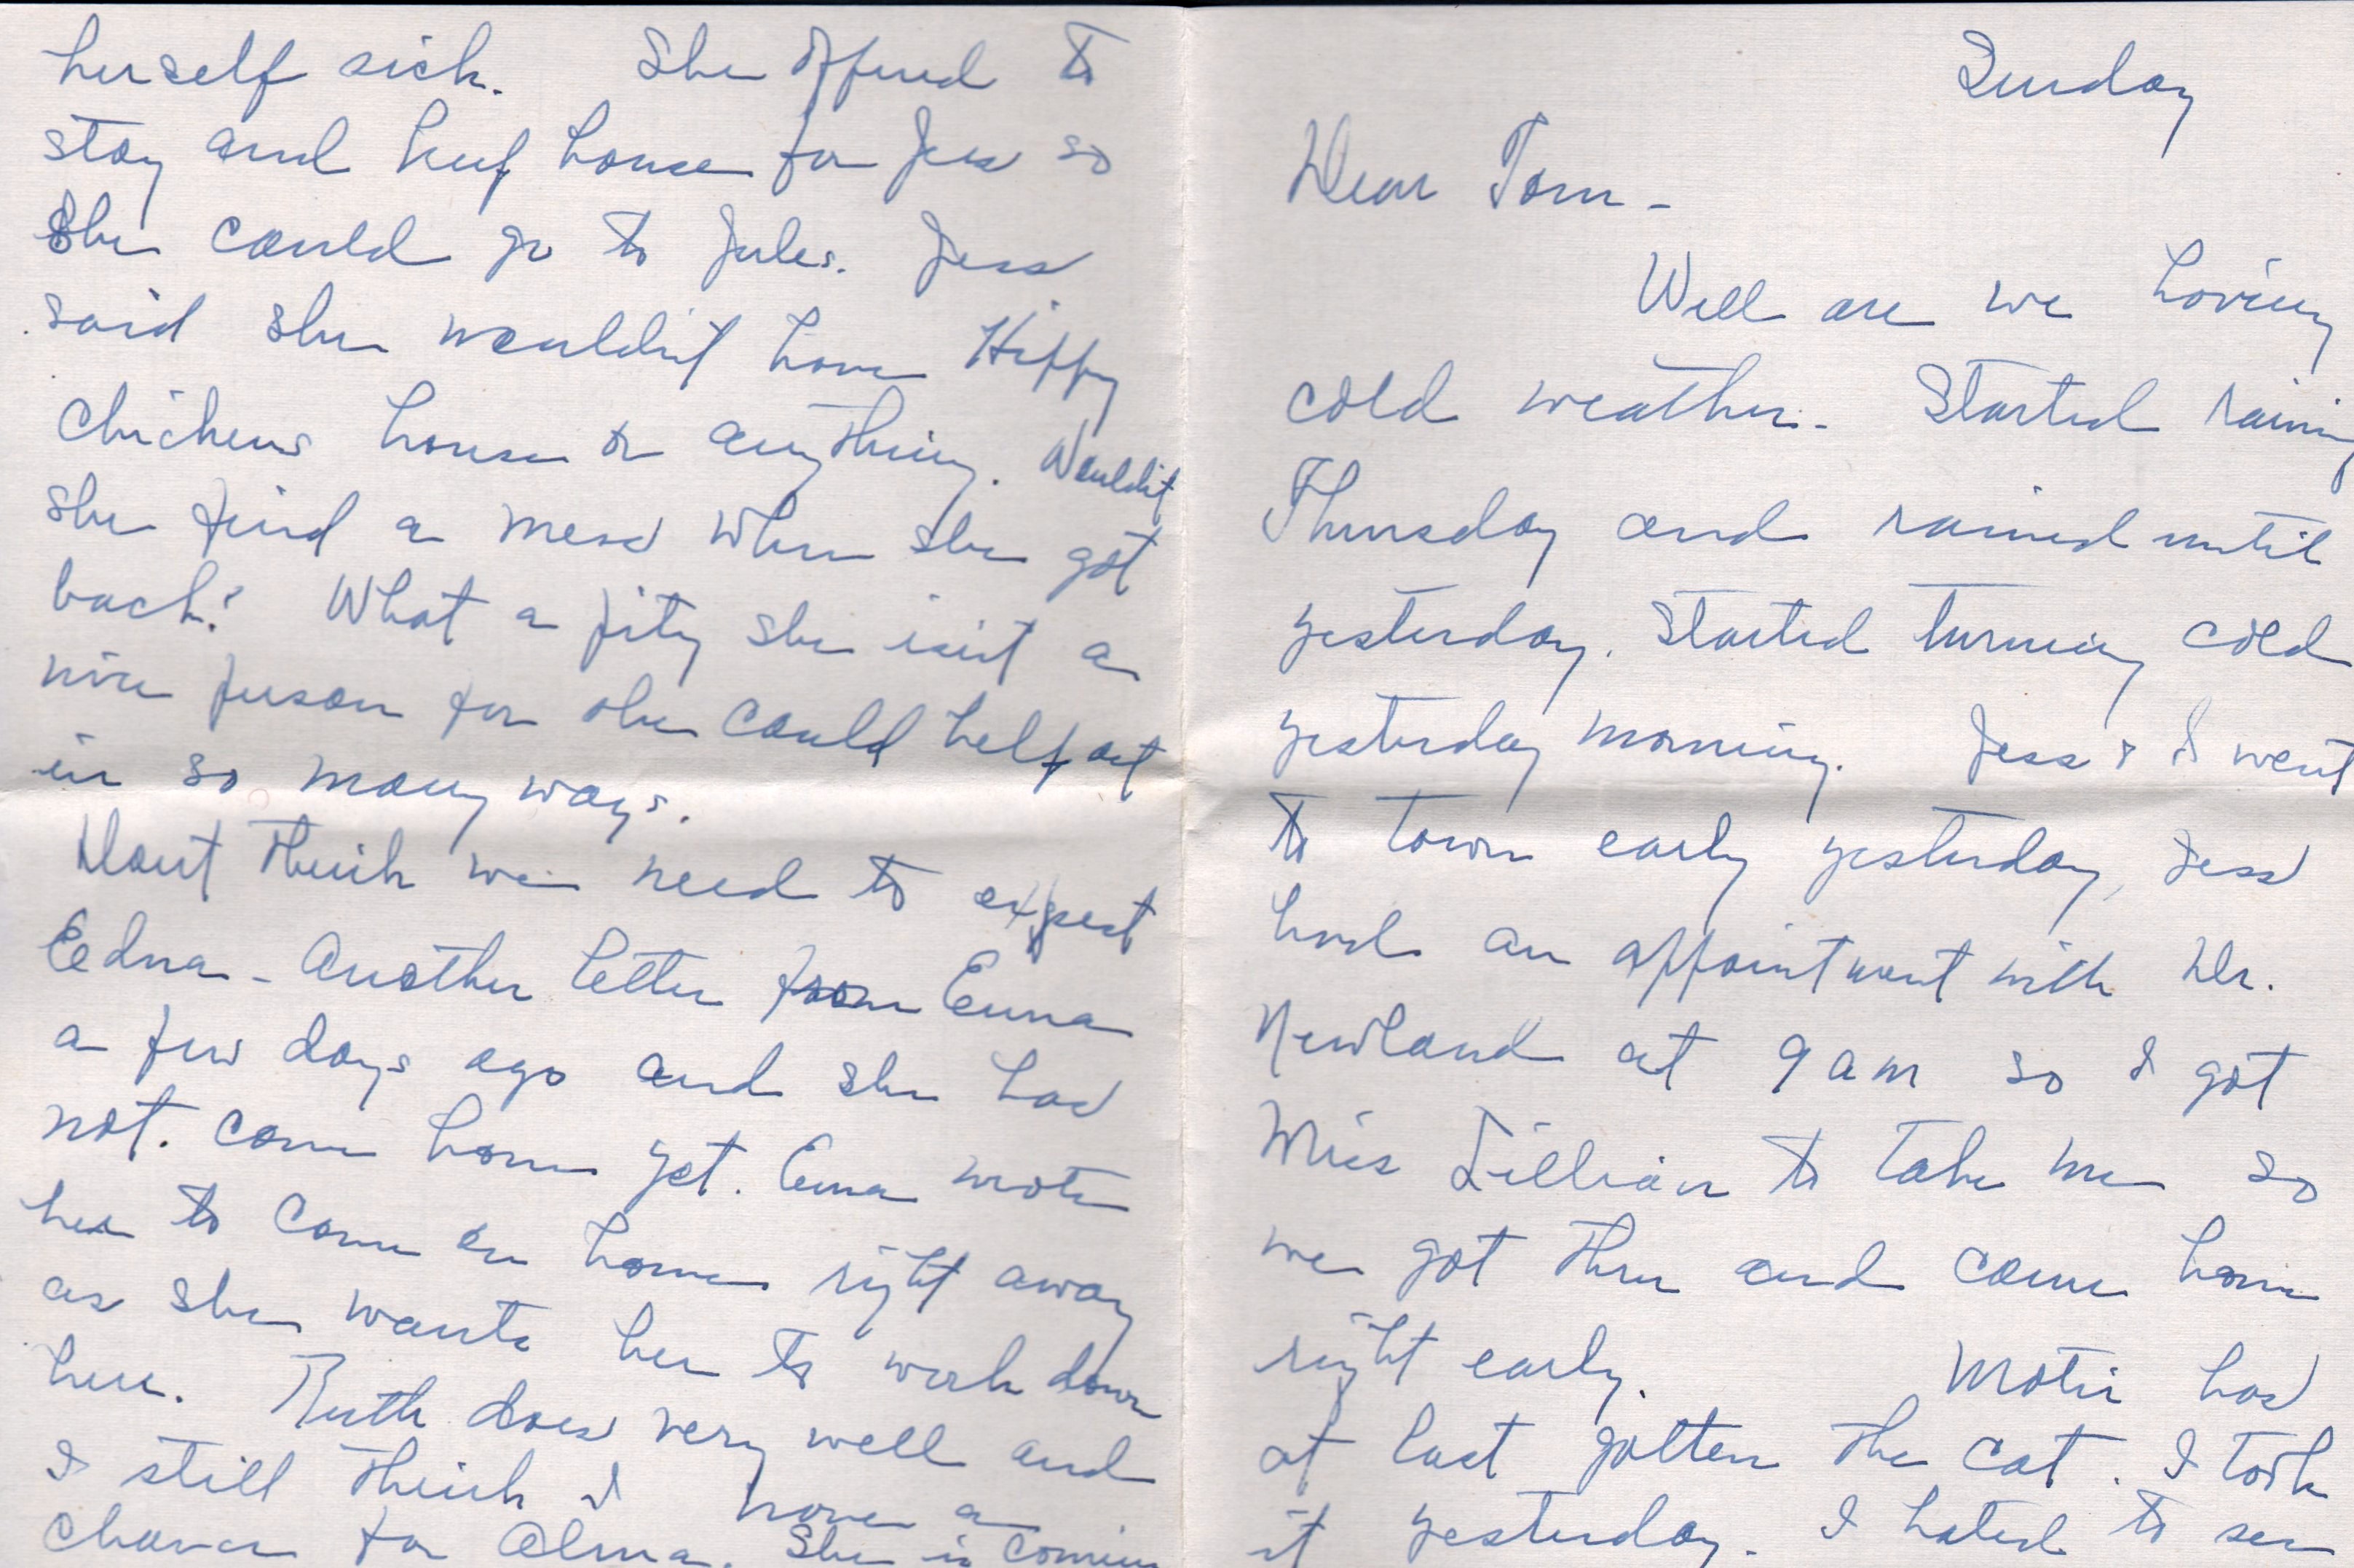 Sunday
Dear Tom -
Well are we having
cold weather. Started raining
Thursday and rained until
yesterday. Started turning cold
yesterday morning. Jess & I went
to town early yesterday, Jess
had an appointment with Dr.
Newland at 9 am so I got
Miss Lillian to take me so
we got thru and came home
right early. Motie has
at last gotten the cat. I took
it yesterday. I hated to see
herself sick. She offered to
stay and keep house for Jess so
she could go to Jules. Jess
said she wouldn't have Hippy
chickens house or anything. Wouldn't
she find a mess when she got
back? What a pity she isn't a
nice person for she could help out
in so many ways.
Dont think we need to expect
Eedna - Another letter from Enna
a few days ago and she had
not. come home yet. Enna wrote
her to come on home right away
as she wants her to work down
here. Ruth does very well and
I still think I have a
chance for Alma. She is coming